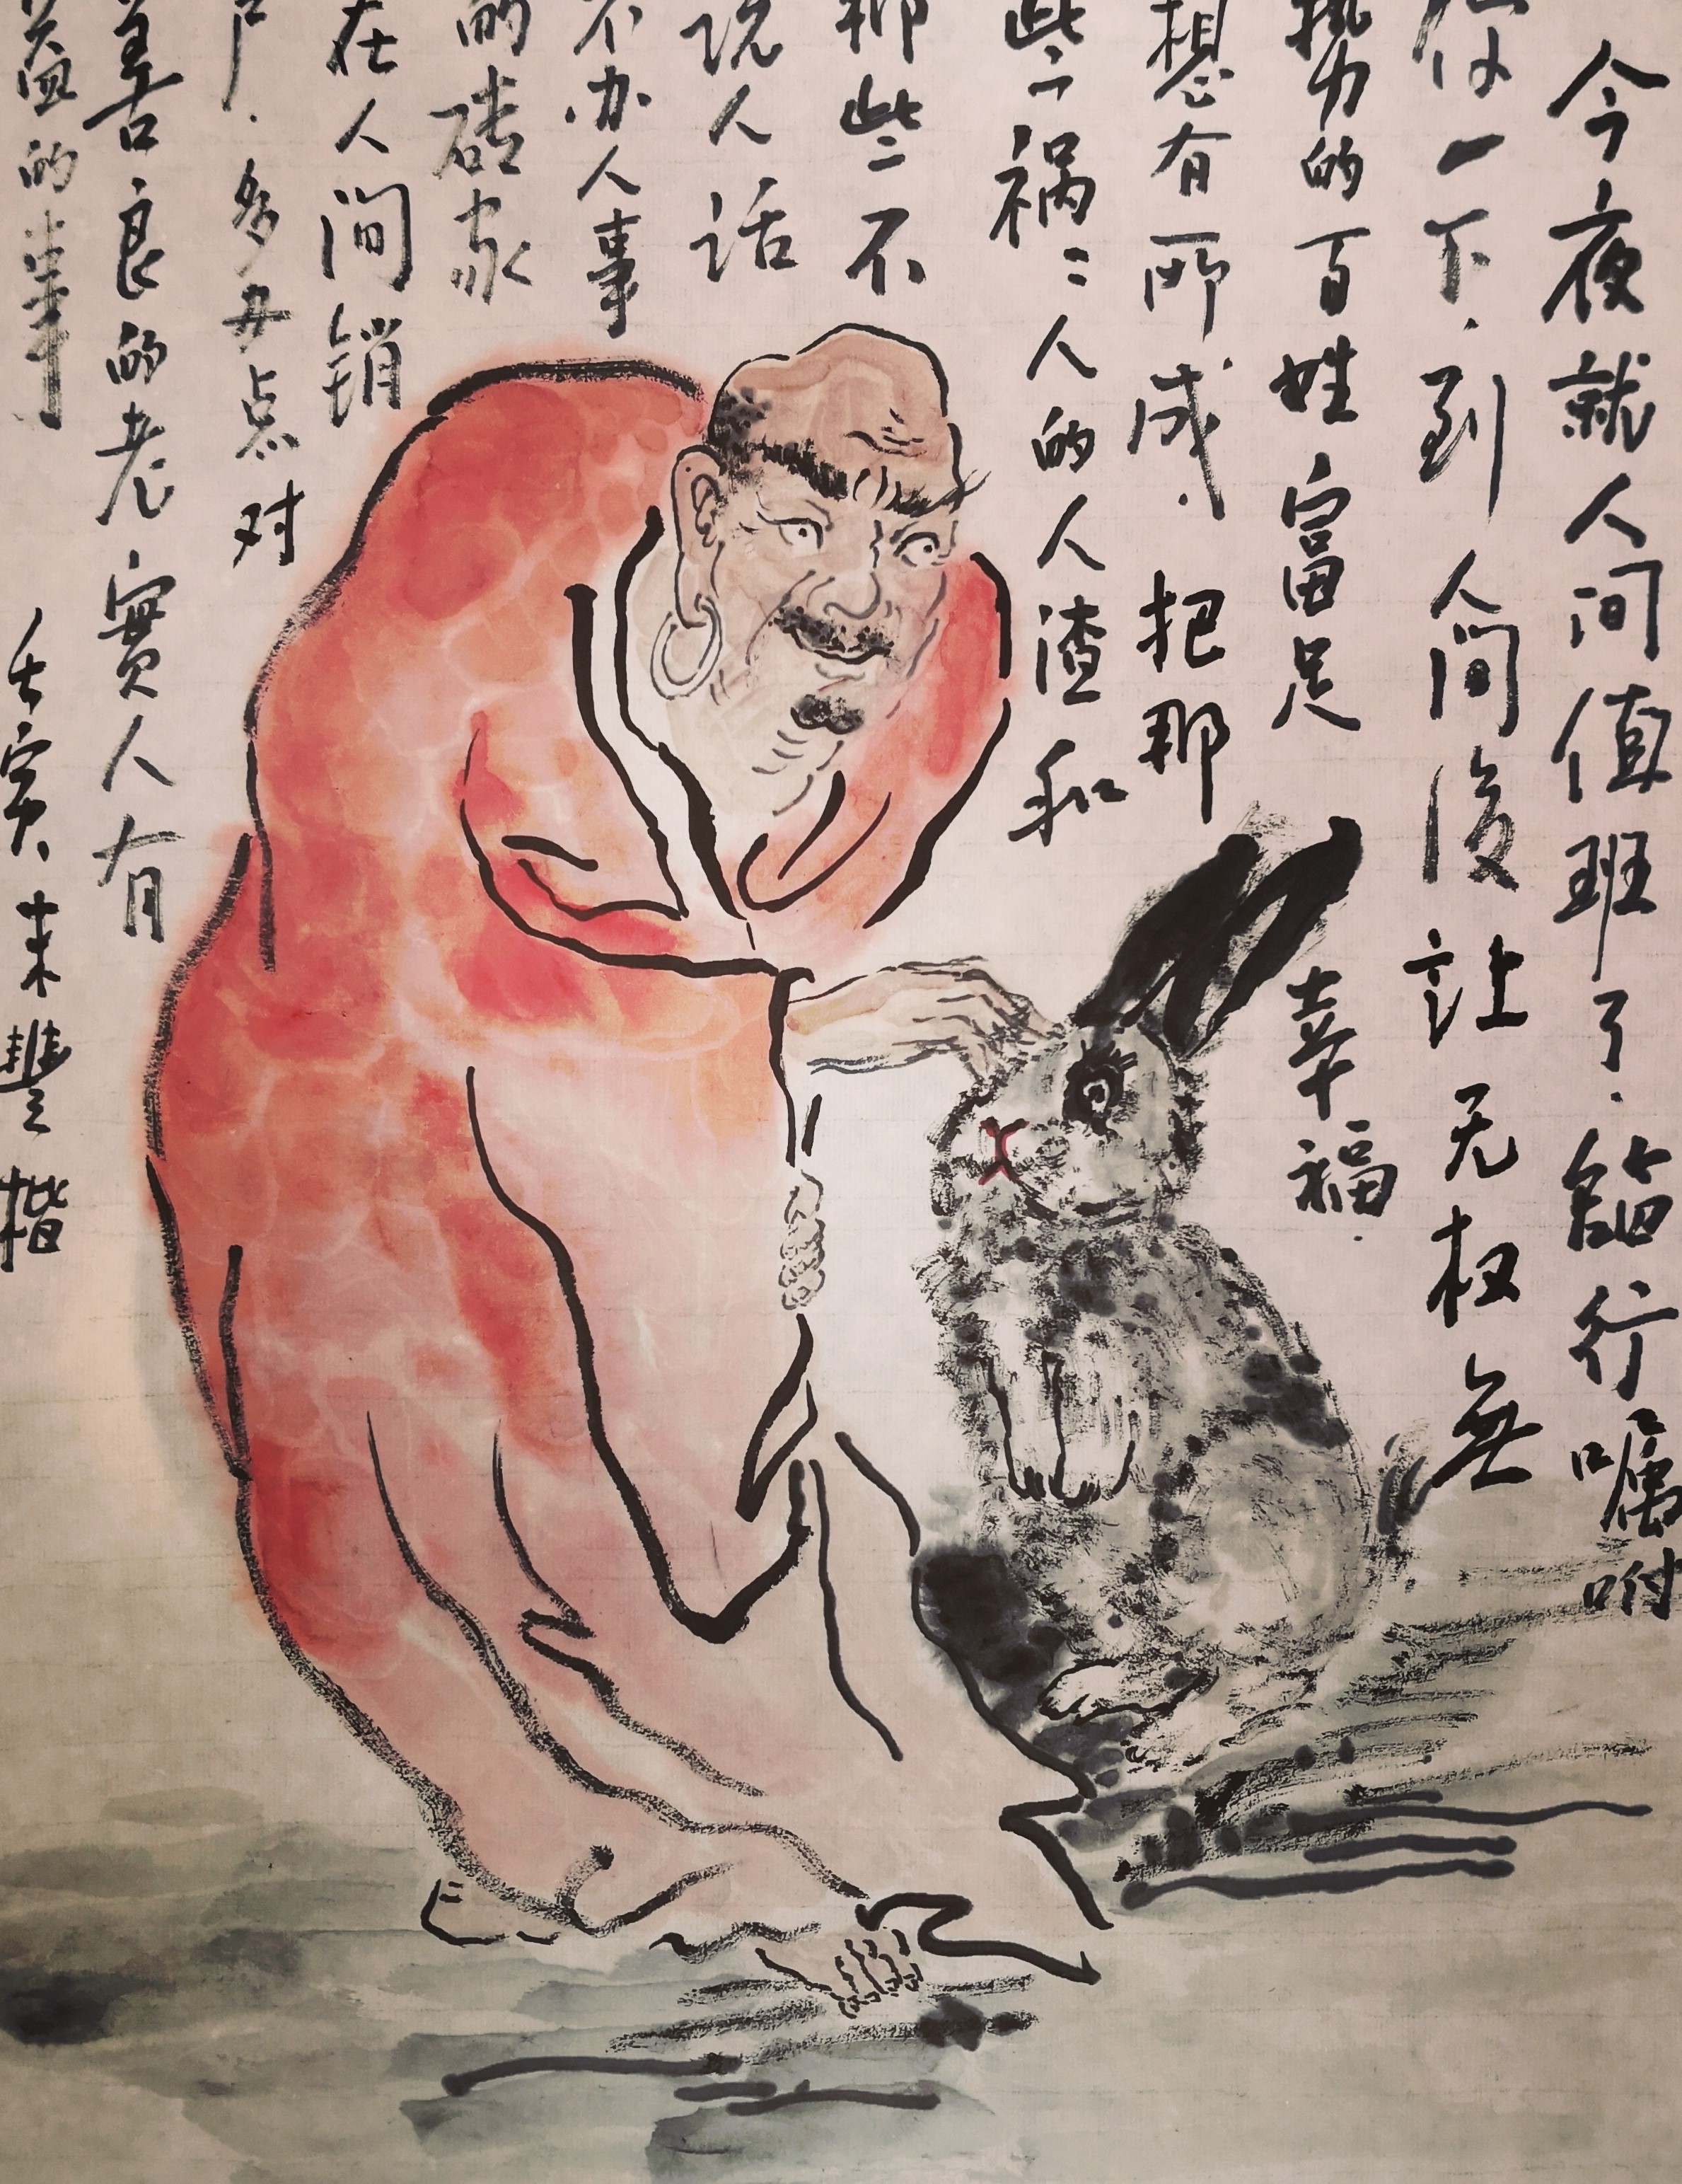 今夜就人间值班了.临行嘱咐
你一下.到人间後让无权無
执力的百姓富足幸福.
想有所成.把那
些二祸二人的人渣和
那些二不
说人话
不办人事
的砖家
在人间销
户.多丑点对
善良的老實人有
益的事
壬寅.末豐楷